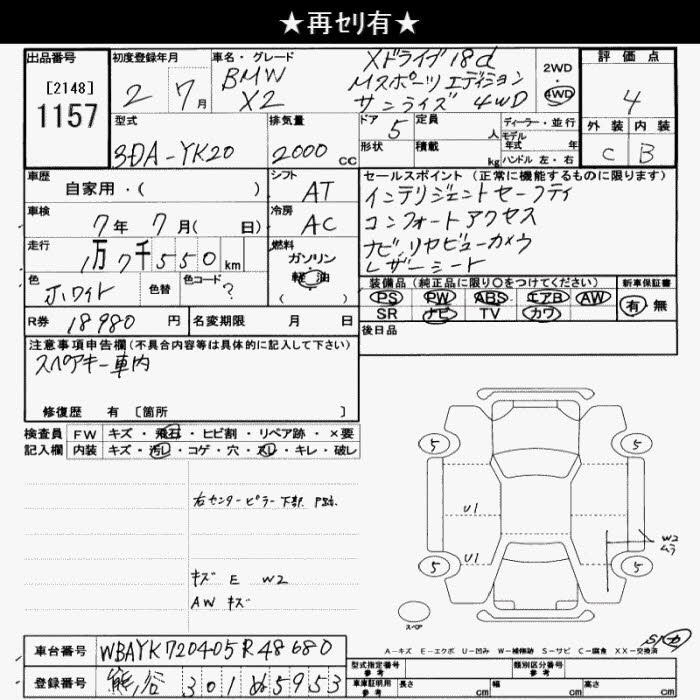 ★再ｾﾘ有★
出品番号 初度登録年月 車名・グレード 評価点
[2148]
1157
2年 7月
BMW
X2
Xドライブ18d
Mスポーツ エディション
サンライズ 4WD
2WD
4WD
4
外装 内装
C B
型式 排気量 ドア 定員 ディーラー・並行
3DA-YK20 2000 CC 5 人 モデル年式 年
形状 積載 kg ハンドル 左・右
車歴 シフト セールスポイント (正常に機能するものに限ります)
自家用・( ) AT インテリジェントセーフティ
コンフォートアクセス
車検 冷房
7年 7月( 日) AC ナビ、リヤビューカメラ
レザーシート
走行 燃料
1万7千550km ガソリン
軽油
( )
色 色替 色コード
ホワイト ?
装備品 (純正品に限り○をつけてください) 新車保証書
PS PW ABS エアB AW 有・無
SR ナビ TV カワ
R券 18980円 名変期限 月 日 後日品
注意事項申告欄(不具合内容等は具体的に記入して下さい)
スペアキー車内
修復歴 有 〔箇所 〕
検査員 FW キズ・飛石・ヒビ割・リペア跡・×要
記入欄 内装 キズ・汚れ・コゲ・穴・スレ・キレ・破し
右センターピラー下部
キズ E W2
AW キズ
5 5
U1
U1
W2
ムラ
5 5
スペア
A-キズ E-エクボ U-凹み W-補修跡 S-サビ C-腐食 XX-交換済
車台番号 WBAYK720405R48680
登録番号 熊谷 301ぬ5953
型式指定番号 参考 類別区分番号 参考
車庫証明用 参考 長さ cm 幅 cm 高さ cm